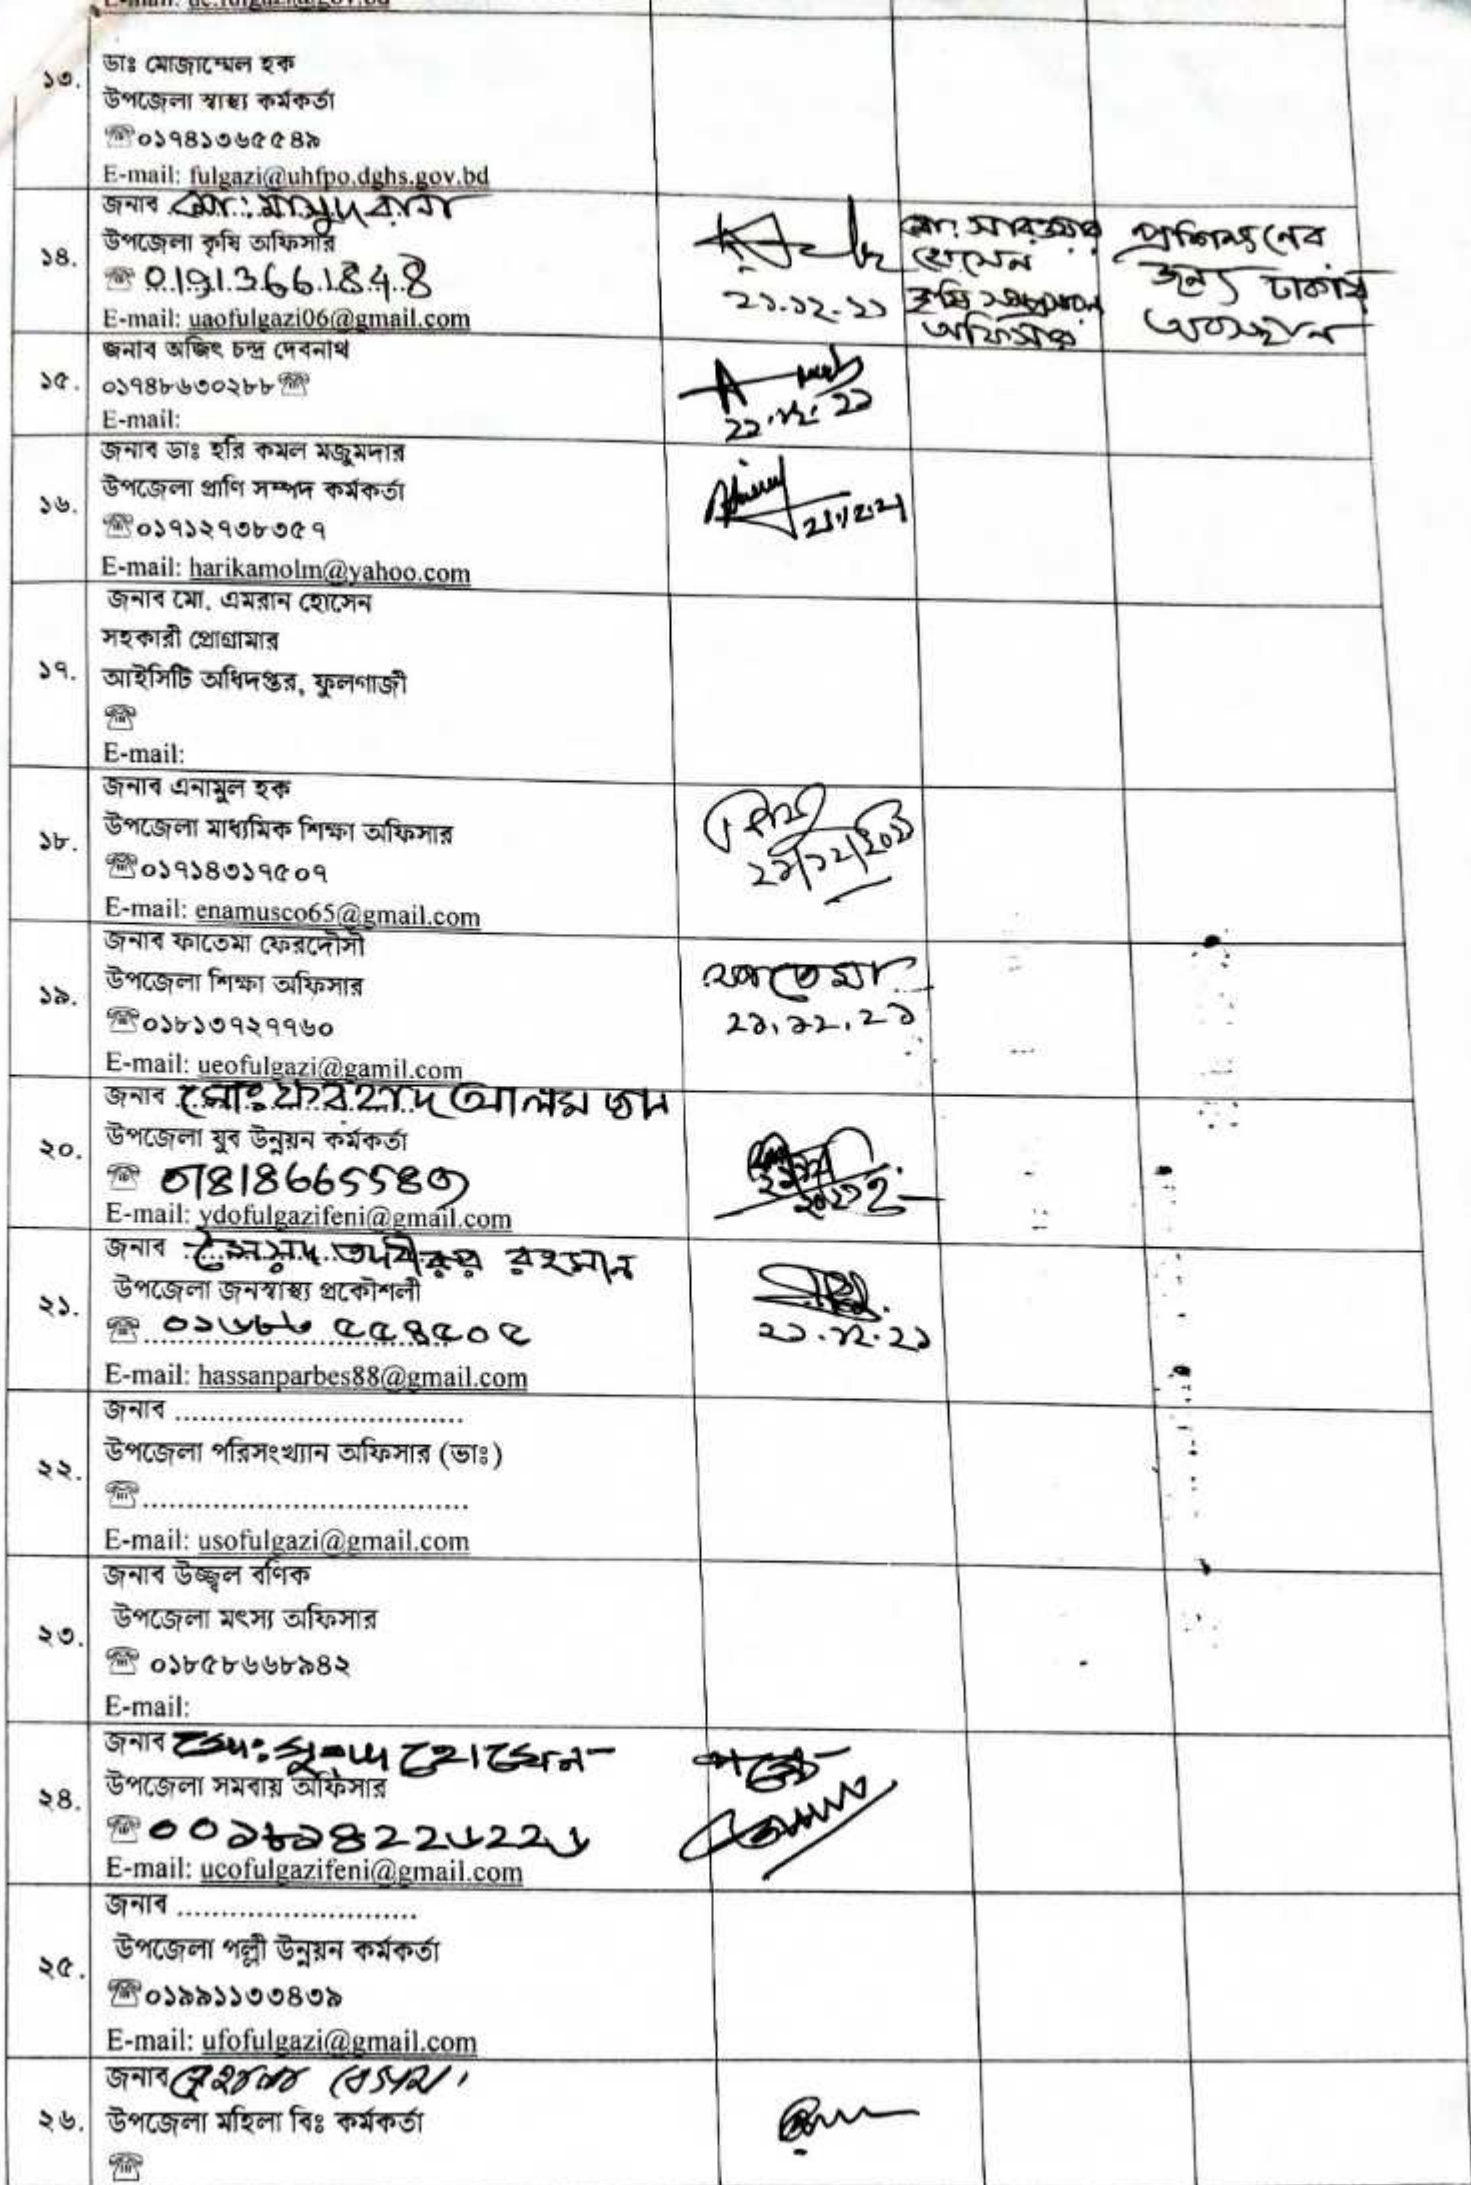 ১৩.
ডাঃ মোজাম্মেল হক
উপজেলা স্বাস্থ্য কর্মকর্তা
☏০১৭৪১৩৬৫৫৪৯
E-mail: fulgazi@uhfpo.dghs.gov.bd
১৪.
জনাব মো: মাসুদ রানা
উপজেলা কৃষি অফিসার
☏ 01913661848
E-mail: uaofulgazi06@gmail.com
২১.১২.২১
মো: সারওয়ার
হোসেন
কৃষি সম্প্রসারণ
অফিসার
প্রশিক্ষণের
জন্য ঢাকায়
অবস্থান
১৫.
জনাব অজিৎ চন্দ্র দেবনাথ
০১৭৪৮৬৩০২৮৮☏
E-mail:
২১.১২.২১
১৬.
জনাব ডাঃ হরি কমল মজুমদার
উপজেলা প্রাণি সম্পদ কর্মকর্তা
☏০১৭১২৭৩৮৩৫৭
E-mail: harikamolm@yahoo.com
১৭.
জনাব মো. এমরান হোসেন
সহকারী প্রোগ্রামার
আইসিটি অধিদপ্তর, ফুলগাজী
☏
E-mail:
১৮.
জনাব এনামুল হক
উপজেলা মাধ্যমিক শিক্ষা অফিসার
☏০১৭১৪৩১৭৫০৭
E-mail: enamusco65@gmail.com
২১/১২/২০২১
১৯.
জনাব ফাতেমা ফেরদৌসী
উপজেলা শিক্ষা অফিসার
☏০১৮১৩৭২৭৭৬০
E-mail: ueofulgazi@gamil.com
ফাতেমা
২১.১২.২১
২০.
জনাব মোঃ ফরহাদ আলম
উপজেলা যুব উন্নয়ন কর্মকর্তা
☏
E-mail: ydofulgazifeni@gmail.com
২১.
জনাব সৈয়দ রহমান
উপজেলা জনস্বাস্থ্য প্রকৌশলী
☏
E-mail: hassanparbes88@gmail.com
২১.১২.২১
২২.
জনাব ..................................
উপজেলা পরিসংখ্যান অফিসার (ভাঃ)
☏......................................
E-mail: usofulgazi@gmail.com
২৩.
জনাব উজ্জ্বল বণিক
উপজেলা মৎস্য অফিসার
☏ ০১৮৫৮৬৬৮৯৪২
E-mail:
২৪.
জনাব মো: হোসেন
উপজেলা সমবায় অফিসার
☏
E-mail: ucofulgazifeni@gmail.com
পক্ষে
২৫.
জনাব ............................
উপজেলা পল্লী উন্নয়ন কর্মকর্তা
☏০১৯৯১১৩৩৪৩৯
E-mail: ufofulgazi@gmail.com
২৬.
জনাব
উপজেলা মহিলা বিঃ কর্মকর্তা
☏